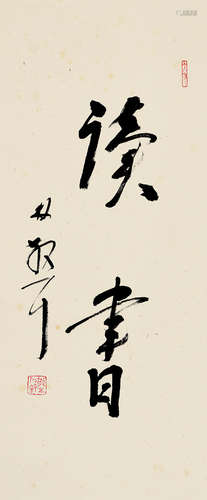 讀書
林散耳